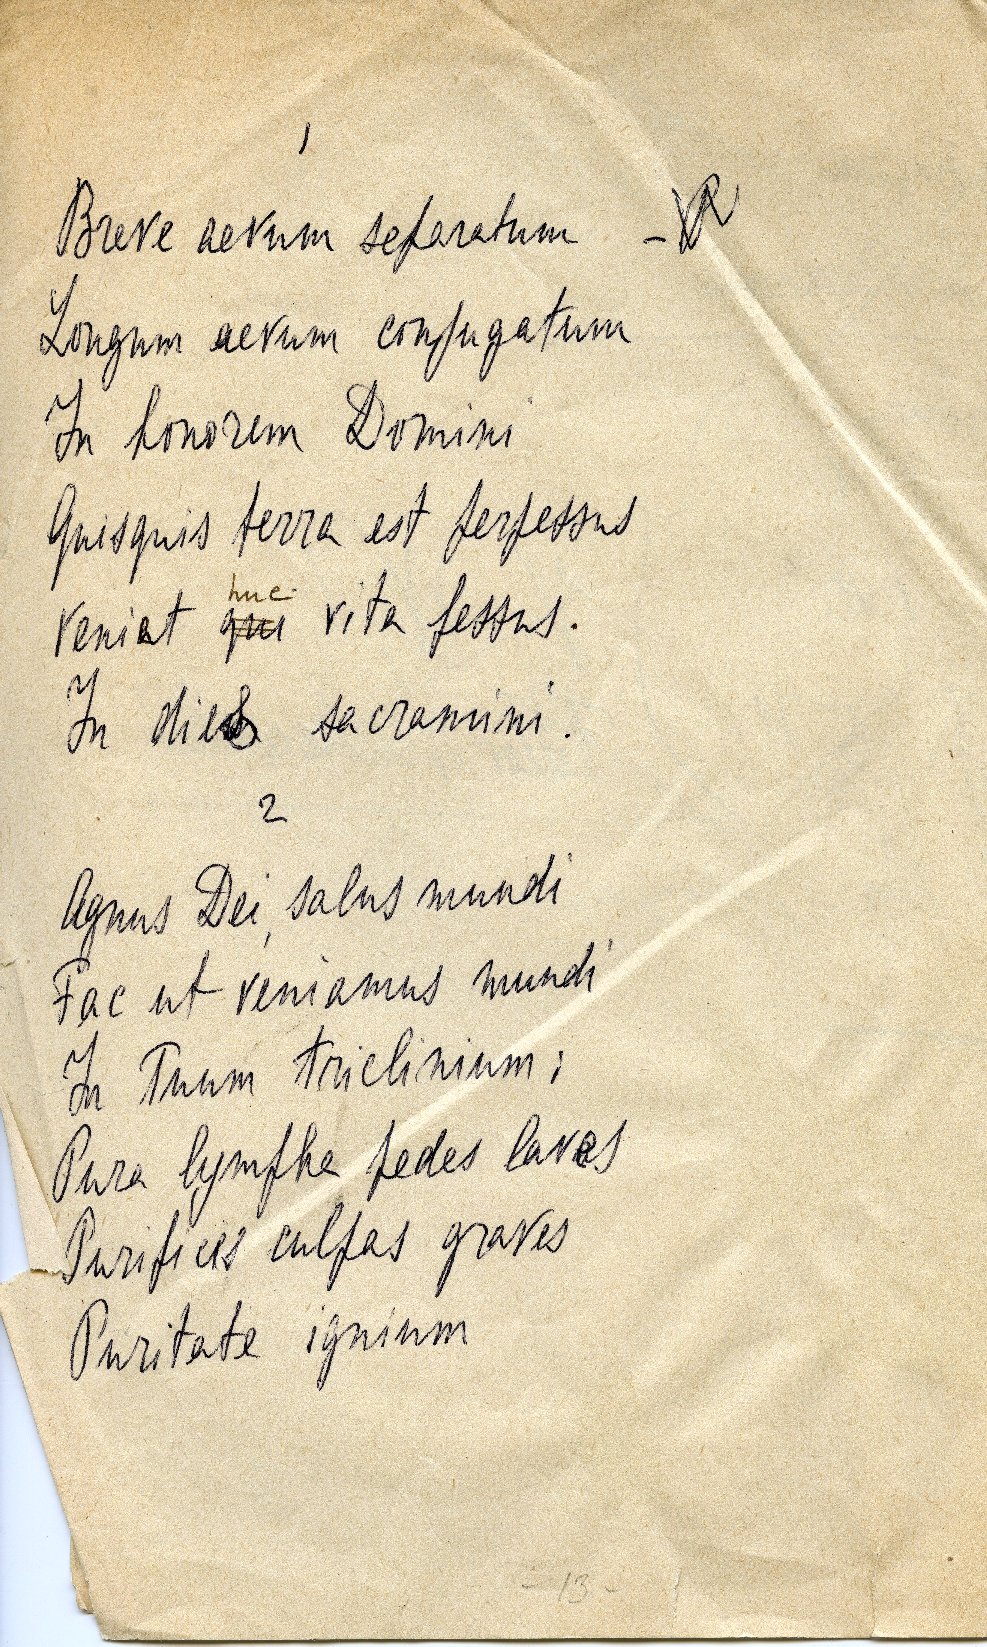 1
Breve aevum separatum -
Longum aevum conjugatum
In honorem Domini
Quisquis terra est perpessus
huc
veniat qui vita fessus.
In die sacramini.
2
Agnus Dei, salus mundi
Fac ut veniamus mundi
In Tuum triclinium;
Pura lympha pedes laves
Purifices culpas graves
Puritate ignium
- 13 -